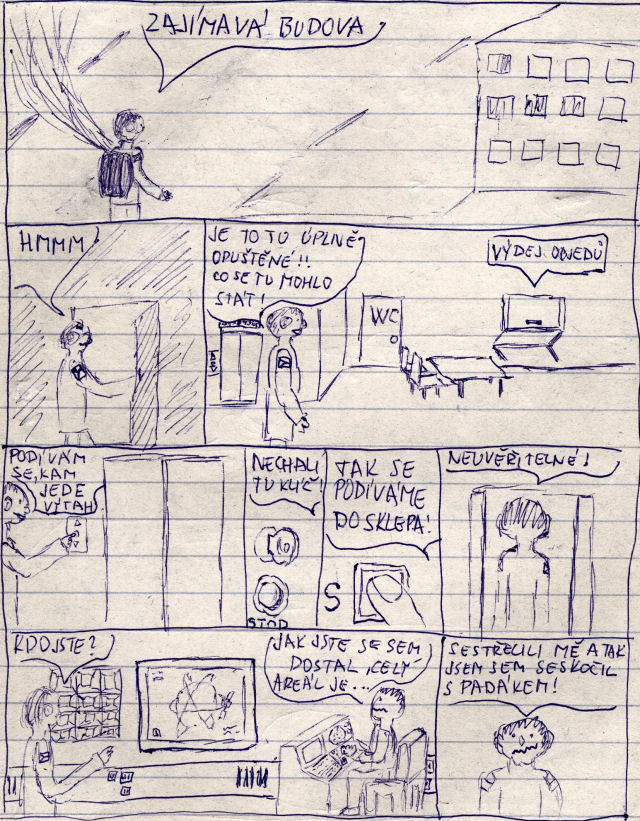 ZAJÍMAVÁ BUDOVA
HMMM
JE TO TU ÚPLNĚ
OPUŠTĚNÉ!!
CO SE TU MOHLO
STÁT!
WC
VÝDEJ OBJEDŮ
PODÍVÁM
SE, KAM
JEDE
VÝTAH!
NECHALI
TU KLÍČ!
STOP
TAK SE
PODÍVÁME
DO SKLEPA!
S
NEUVĚŘITELNÉ!
KDO JSTE?
JAK JSTE SE SEM
DOSTAL, CELÝ
AREÁL JE...
SESTŘELILI MĚ A TAK
JSEM SEM SESKOČIL
S PADÁKEM!